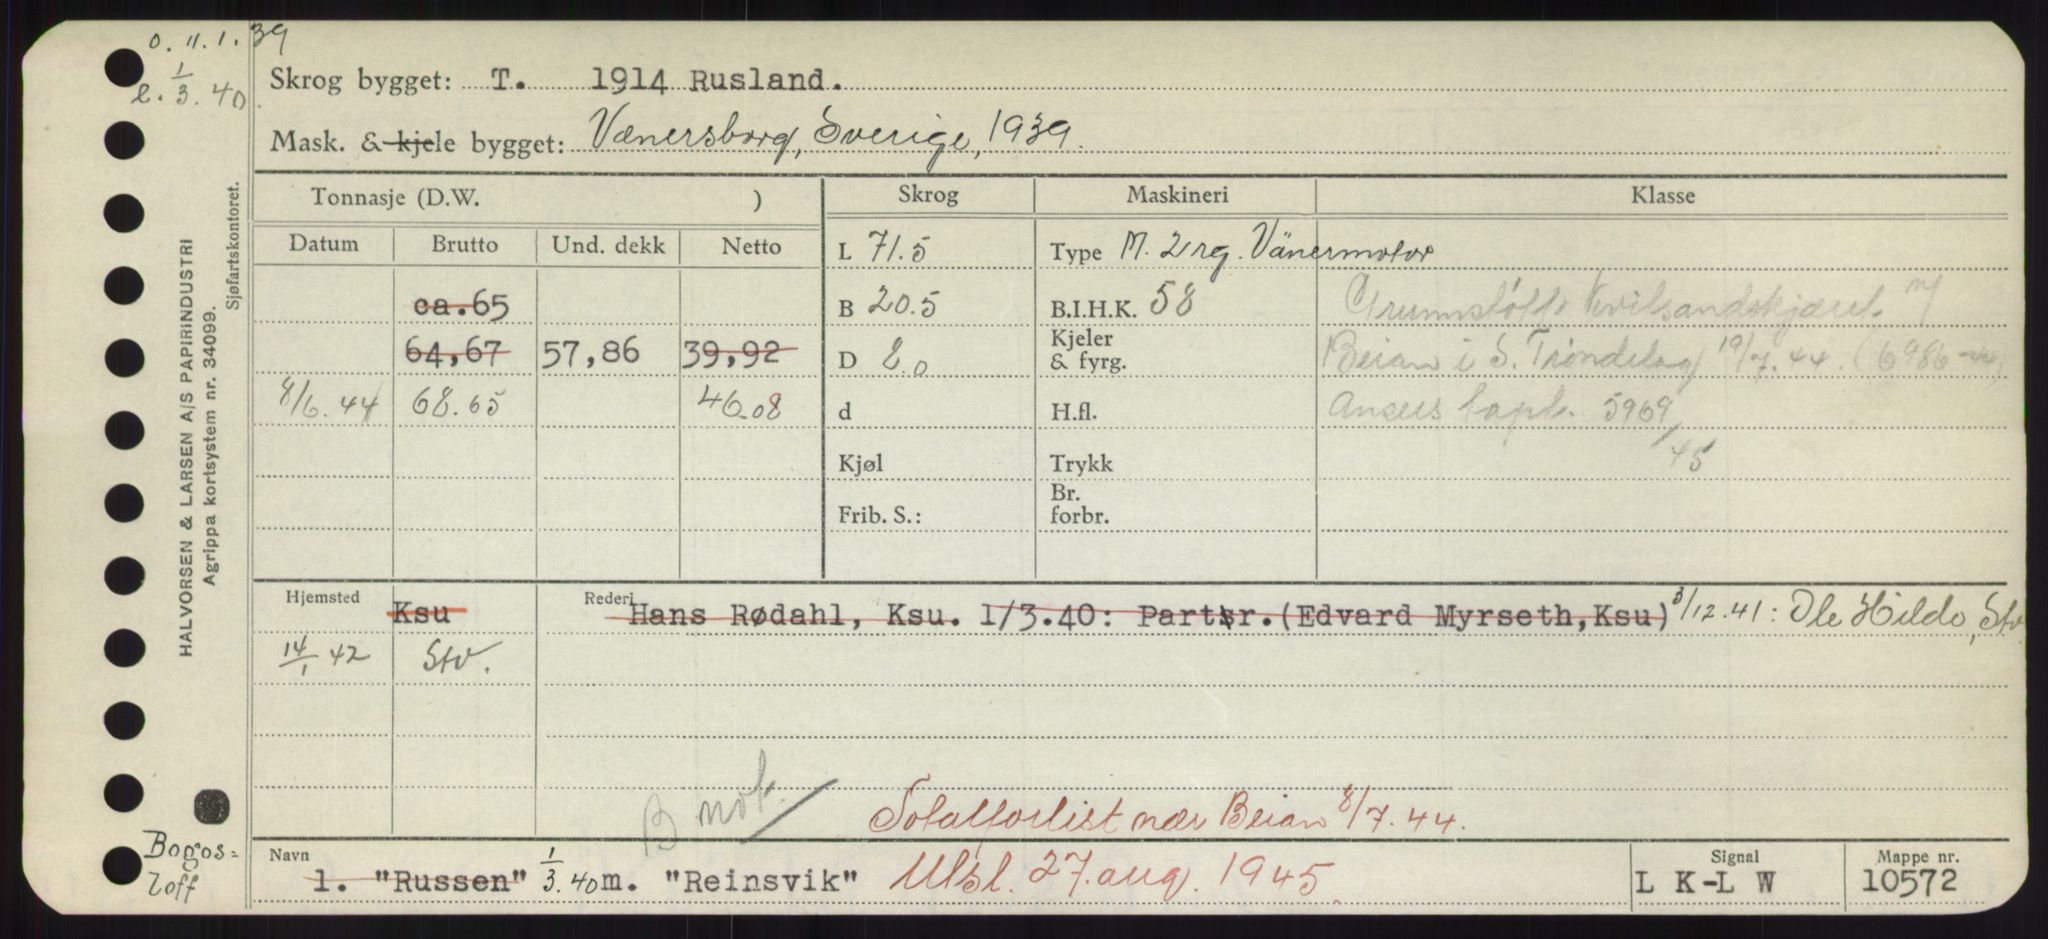 o. 11.1.39
e. 1/3.40
Skrog bygget: T. 1914 Rusland.
Mask. & kjele bygget: Vænersborg, Sverige, 1939.
Tonnasje (D.W. ) Skrog Maskineri Klasse
Datum Brutto Und. dekk Netto L 71.5 Type M. 2 rg. Vänermotor
ca.65 B 20.5 B.I.H.K. 58 Grunnstøtt Kvilsandskjæret v/
64,67 57,86 39,92 D 8.0 Kjeler & fyrg. Beian i S. Trøndelag 10/7.44. (6986-44)
8/6.44 68.65 46.08 d H.fl. Ansees kapt. 5969/45
Kjøl Trykk
Frib. S.: Br. forbr.
Hjemsted Ksu Rederi Hans Rødahl, Ksu. 1/3.40: Partsr.(Edvard Myrseth,Ksu) 3/12.41: Ole Hildo, Stv.
14/1 42 Stv.
B not.
Totalforlist nær Beian 8/7.44.
Navn Signal Mappe nr.
1. "Russen" 1/3.40 m. "Reinsvik" Utsl. 27. aug. 1945. L K-L W 10572
Bogos-
loff
HALVORSEN & LARSEN A/S PAPIRINDUSTRI
Agrippa kortsystem nr. 34099.
Sjøfartskontoret.